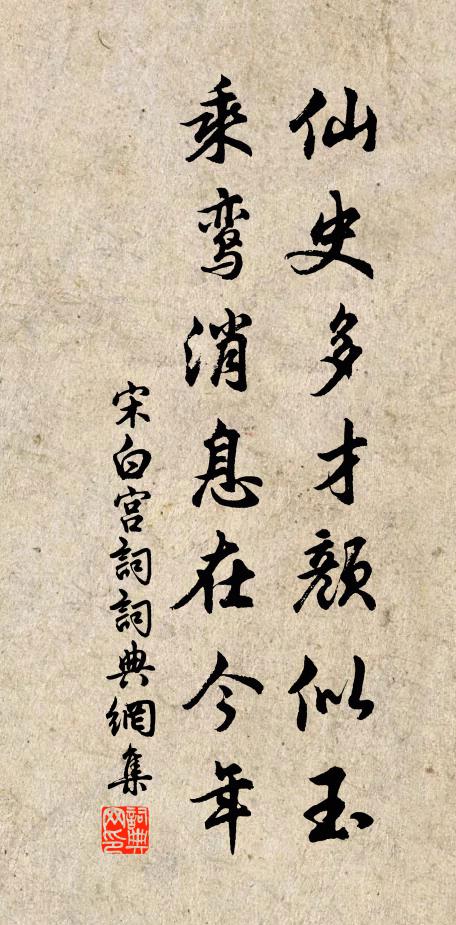 仙史多才颜似玉
乘鸾消息在今年
宋白宫詞詞典網集
詞典网印